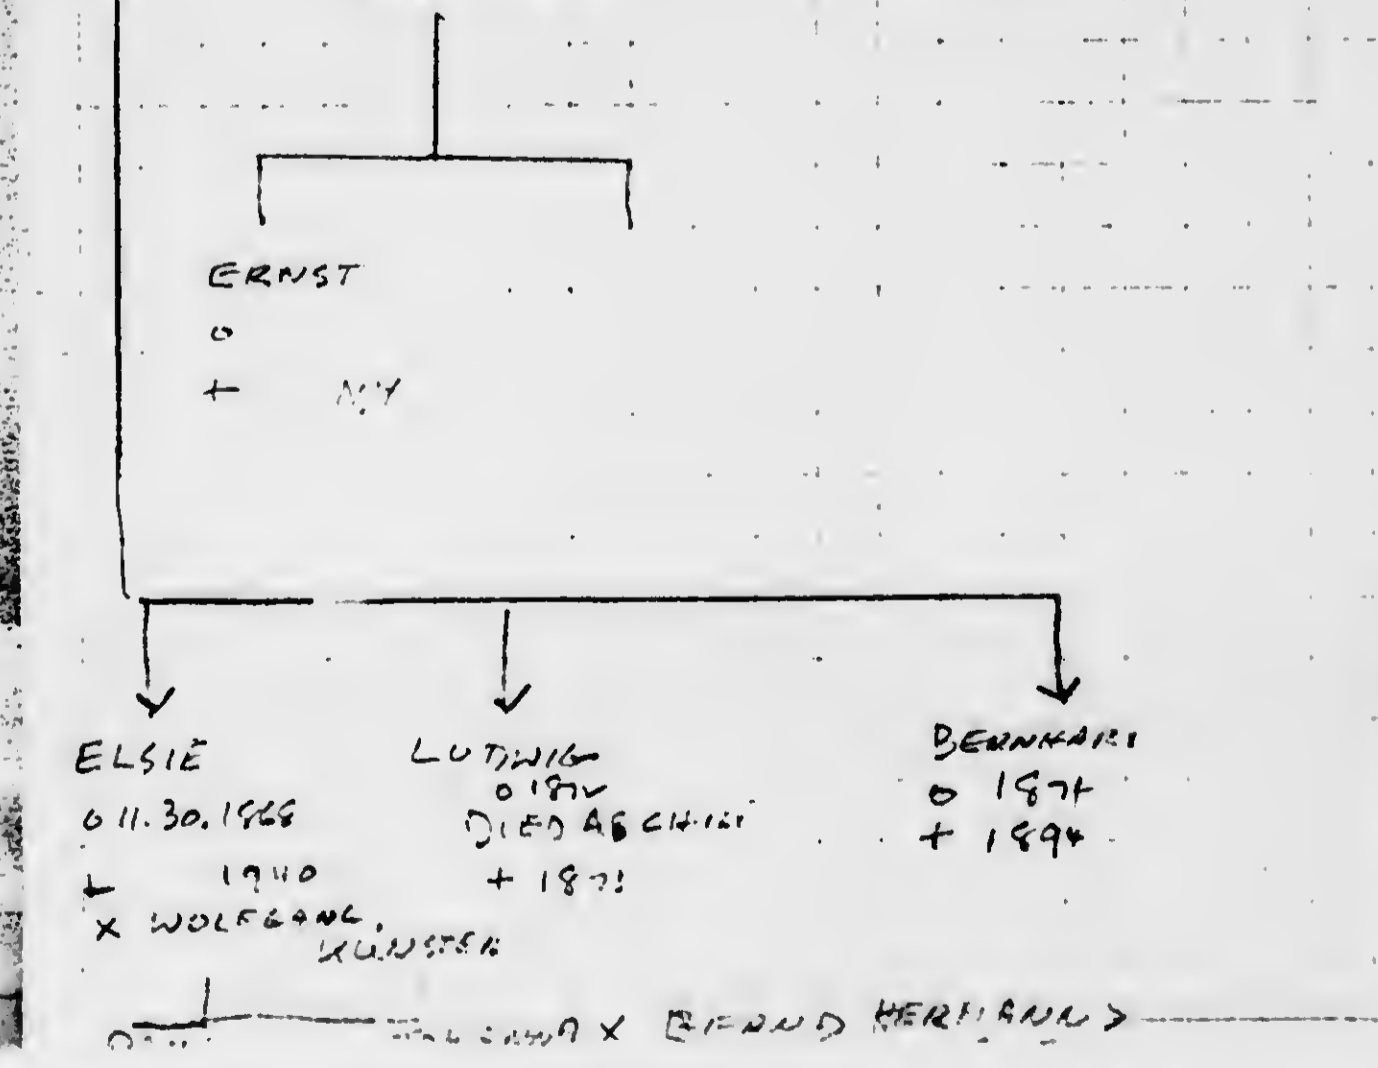 ERNST
o
+ NY
ELSIE
o 11.30.1868
+ 1940
x WOLFGANG
KUNSTER
LUDWIG
o 187
DIED AS CHILD
+ 187
BERNHARD
o 187
+ 1894
x BERND HERMANN >